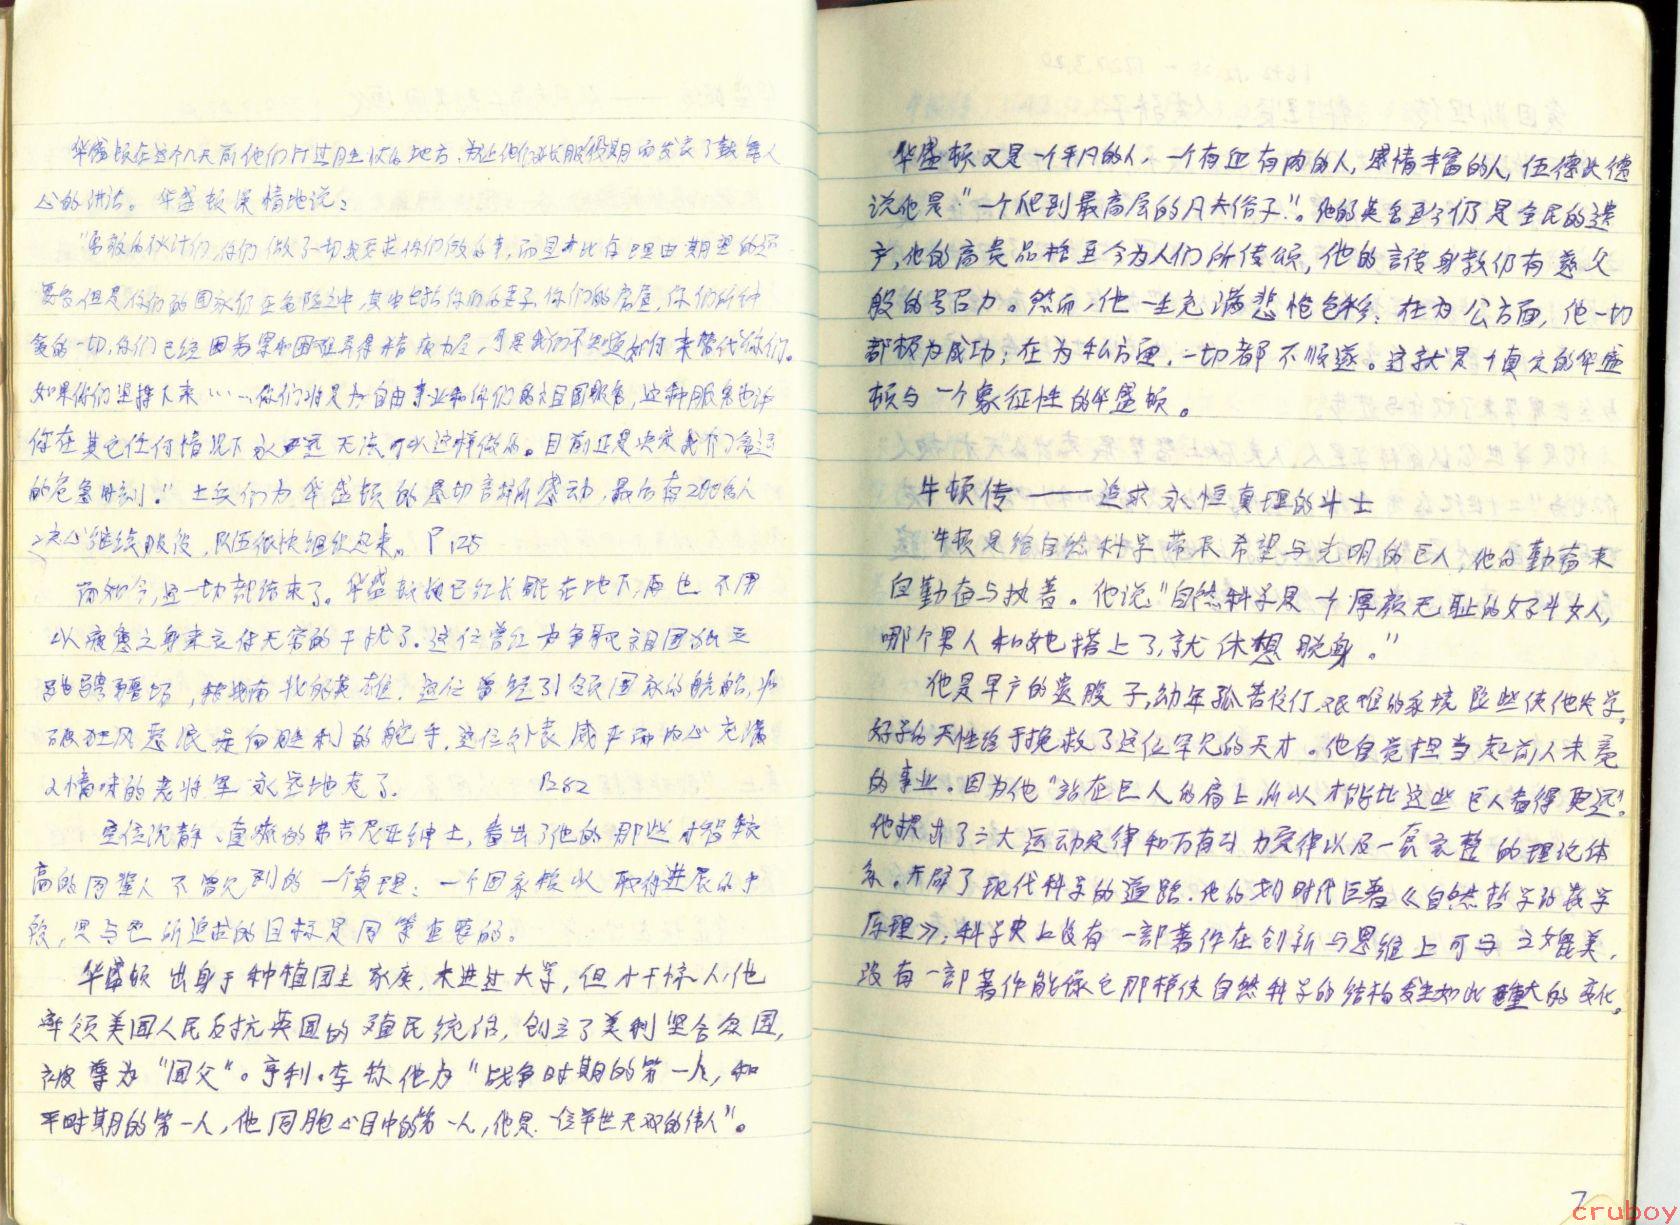 华盛顿在这个几天前他们打过胜仗的地方,为让他们延长服役期而发表了鼓舞人
心的讲话。华盛顿深情地说:
"勇敢的伙计们,你们做了一切我要求你们做的事,而且比有理由期望的还
要多,但是你们的国家仍在危险之中,其中包括你们的妻子,你们的房屋,你们所钟
爱的一切,你们已经因劳累和困难弄得精疲力尽,可是我们不知道如何来替代你们。
如果你们坚持下来……你们将是为自由事业和你们的祖国服务,这种服务也许
你在其它任何情况下永远无法可以这样做的。目前正是决定我们命运
的危急时刻。"士兵们为华盛顿的恳切言辞所感动,最后有200多人
决心继续服役,队伍很快组织起来。P125
而如今,这一切都结束了。华盛顿现已经长眠在地下,再也不用
以疲惫之身来应付无穷的干扰了。这位曾经为争取祖国独立
驰骋疆场,转战南北的英雄,这位曾经引领国家的航船,冲
破狂风恶浪走向胜利的舵手,这位外表威严而内心充满
人情味的老将军永远地走了。 P282
这位沉静、直爽的弗吉尼亚绅士,看出了他的那些才智较
高的同辈人不曾见到的一个真理:一个国家赖以取得进展的手
段,是与它所追求的目标是同等重要的。
华盛顿出身于种植园主家庭,未进过大学,但才干惊人,他
率领美国人民反抗英国的殖民统治,创立了美利坚合众国,
被尊为"国父"。亨利·李称他为"战争时期的第一人,和
平时期的第一人,他同胞心目中的第一人,他是一位举世无双的伟人"。
华盛顿又是一个平凡的人,一个有血有肉的人,感情丰富的人,伍德比德
说他是"一个爬到最高层的凡夫俗子"。他的英名至今仍是全民的遗
产,他的高贵品格至今为人们所传颂,他的言传身教仍有慈父
般的号召力。然而,他一生充满悲怆色彩:在为公方面,他一切
都极为成功;在为私方面,一切都不顺遂。这就是个真实的华盛
顿与一个象征性的华盛顿。
牛顿传——追求永恒真理的斗士
牛顿是给自然科学带来希望与光明的巨人,他的勤奋来
自勤奋与执著。他说"自然科学是个厚颜无耻的好斗女人,
哪个男人和她搭上了,就休想脱身。"
他是早产的遗腹子,幼年孤苦伶仃,艰难的家境险些使他失学,
好学的天性终于挽救了这位罕见的天才。他自觉担当起前人未竟
的事业。因为他"站在巨人的肩上,所以才能比这些巨人看得更远"。
他提出了三大运动定律和万有引力定律以及一套完整的理论体
系。开辟了现代科学的道路。他的划时代巨著《自然哲学的数学
原理》,科学史上没有一部著作在创新与思维上可与之媲美,
没有一部著作能像它那样使自然科学的结构发生如此重大的变化。
7
cruboy